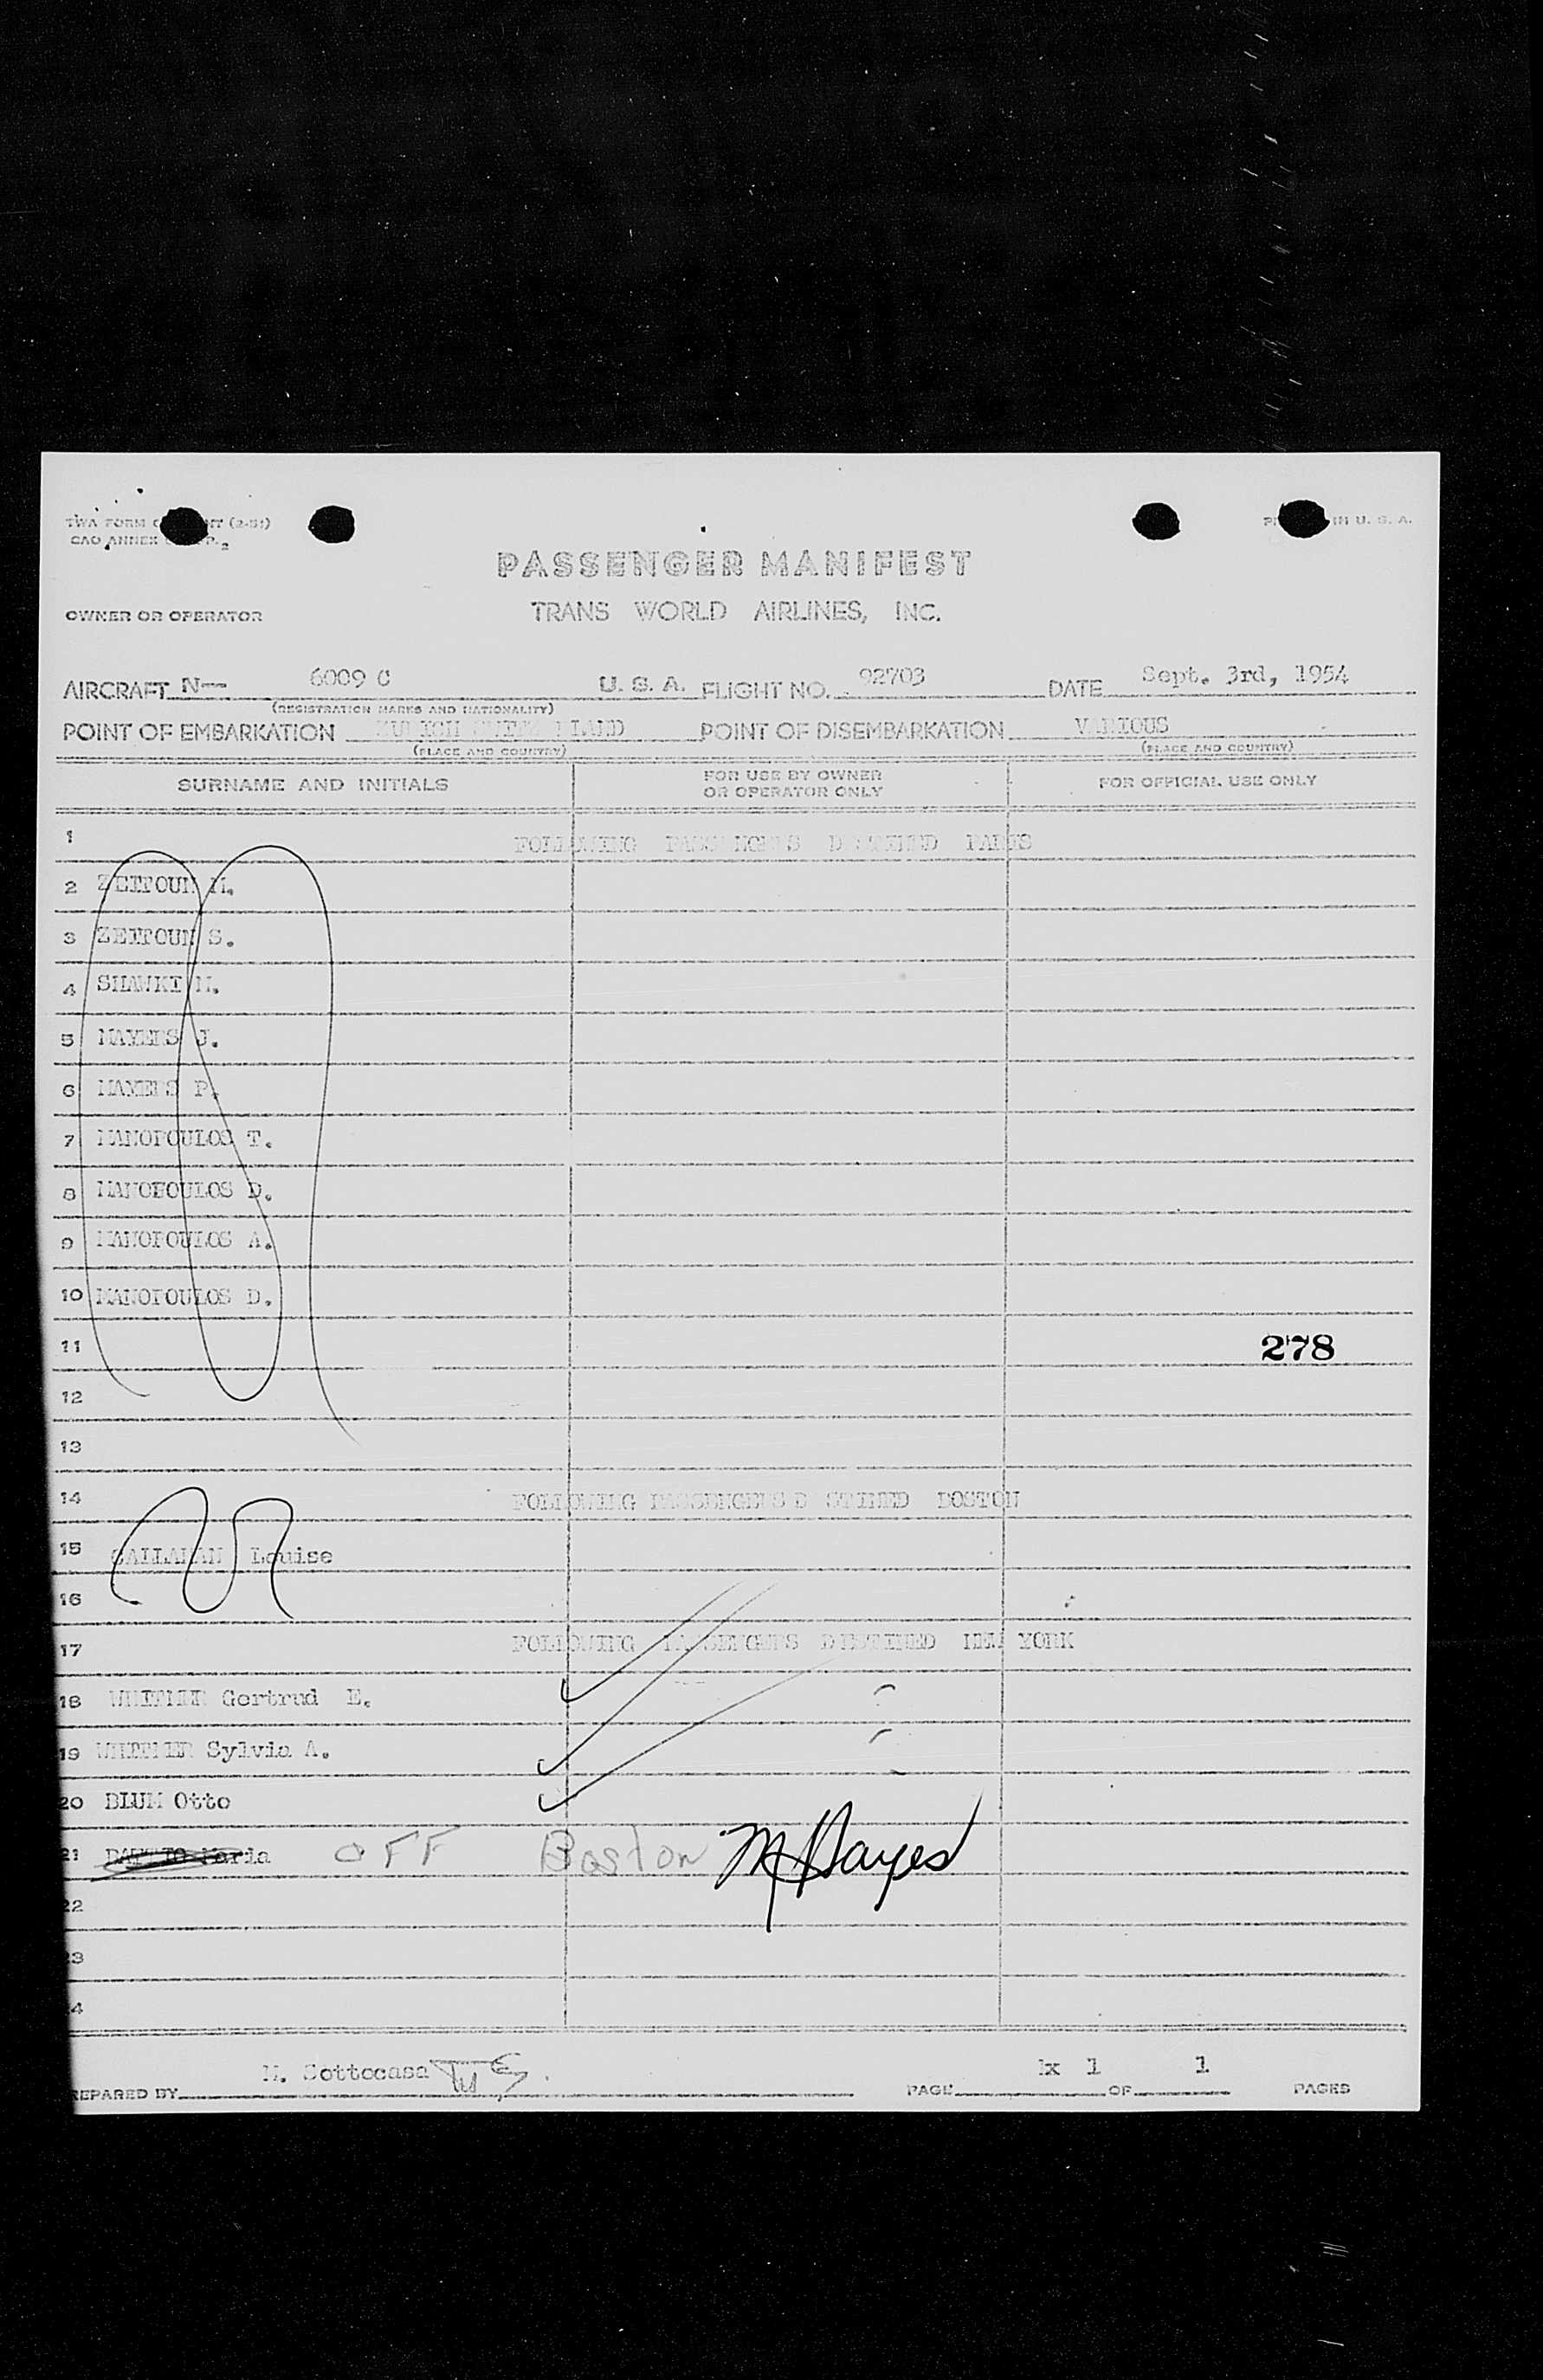 TWA FORM (2-51)
PASSENGER MANIFEST
IN U. S. A.
OWNER OR OPERATOR
TRANS WORLD AIRLINES, INC.
AIRCRAFT N— 6009 C U. S. A. FLIGHT NO. 92703 DATE Sept. 3rd, 1954
(REGISTRATION MARKS AND NATIONALITY)
POINT OF EMBARKATION ZURICH POINT OF DISEMBARKATION VARIOUS
(PLACE AND COUNTRY) (PLACE AND COUNTRY)
SURNAME AND INITIALS FOR USE BY OWNER OR OPERATOR ONLY FOR OFFICIAL USE ONLY
1 FOLLOWING PASSENGERS DESTINED PARIS
2 ZEITOUN M.
3 ZEITOUN S.
4 SHAWKI M.
5 MAYERS J.
6 MAYERS P.
7 MANOPOULOS T.
8 MANOPOULOS D.
9 MANOPOULOS A.
10 MANOPOULOS D.
11 278
12
13
14 FOLLOWING PASSENGERS DESTINED BOSTON
15 CALLAHAN Louise
16
17 FOLLOWING PASSENGERS DESTINED NEW YORK
18 Gertrud E.
19 Sylvia A.
20 BLUM Otto
21 Maria OFF Boston M Hayes
22
23
24
PREPARED BY M. Sottocasa PAGE 1x 1 OF 1 PAGES